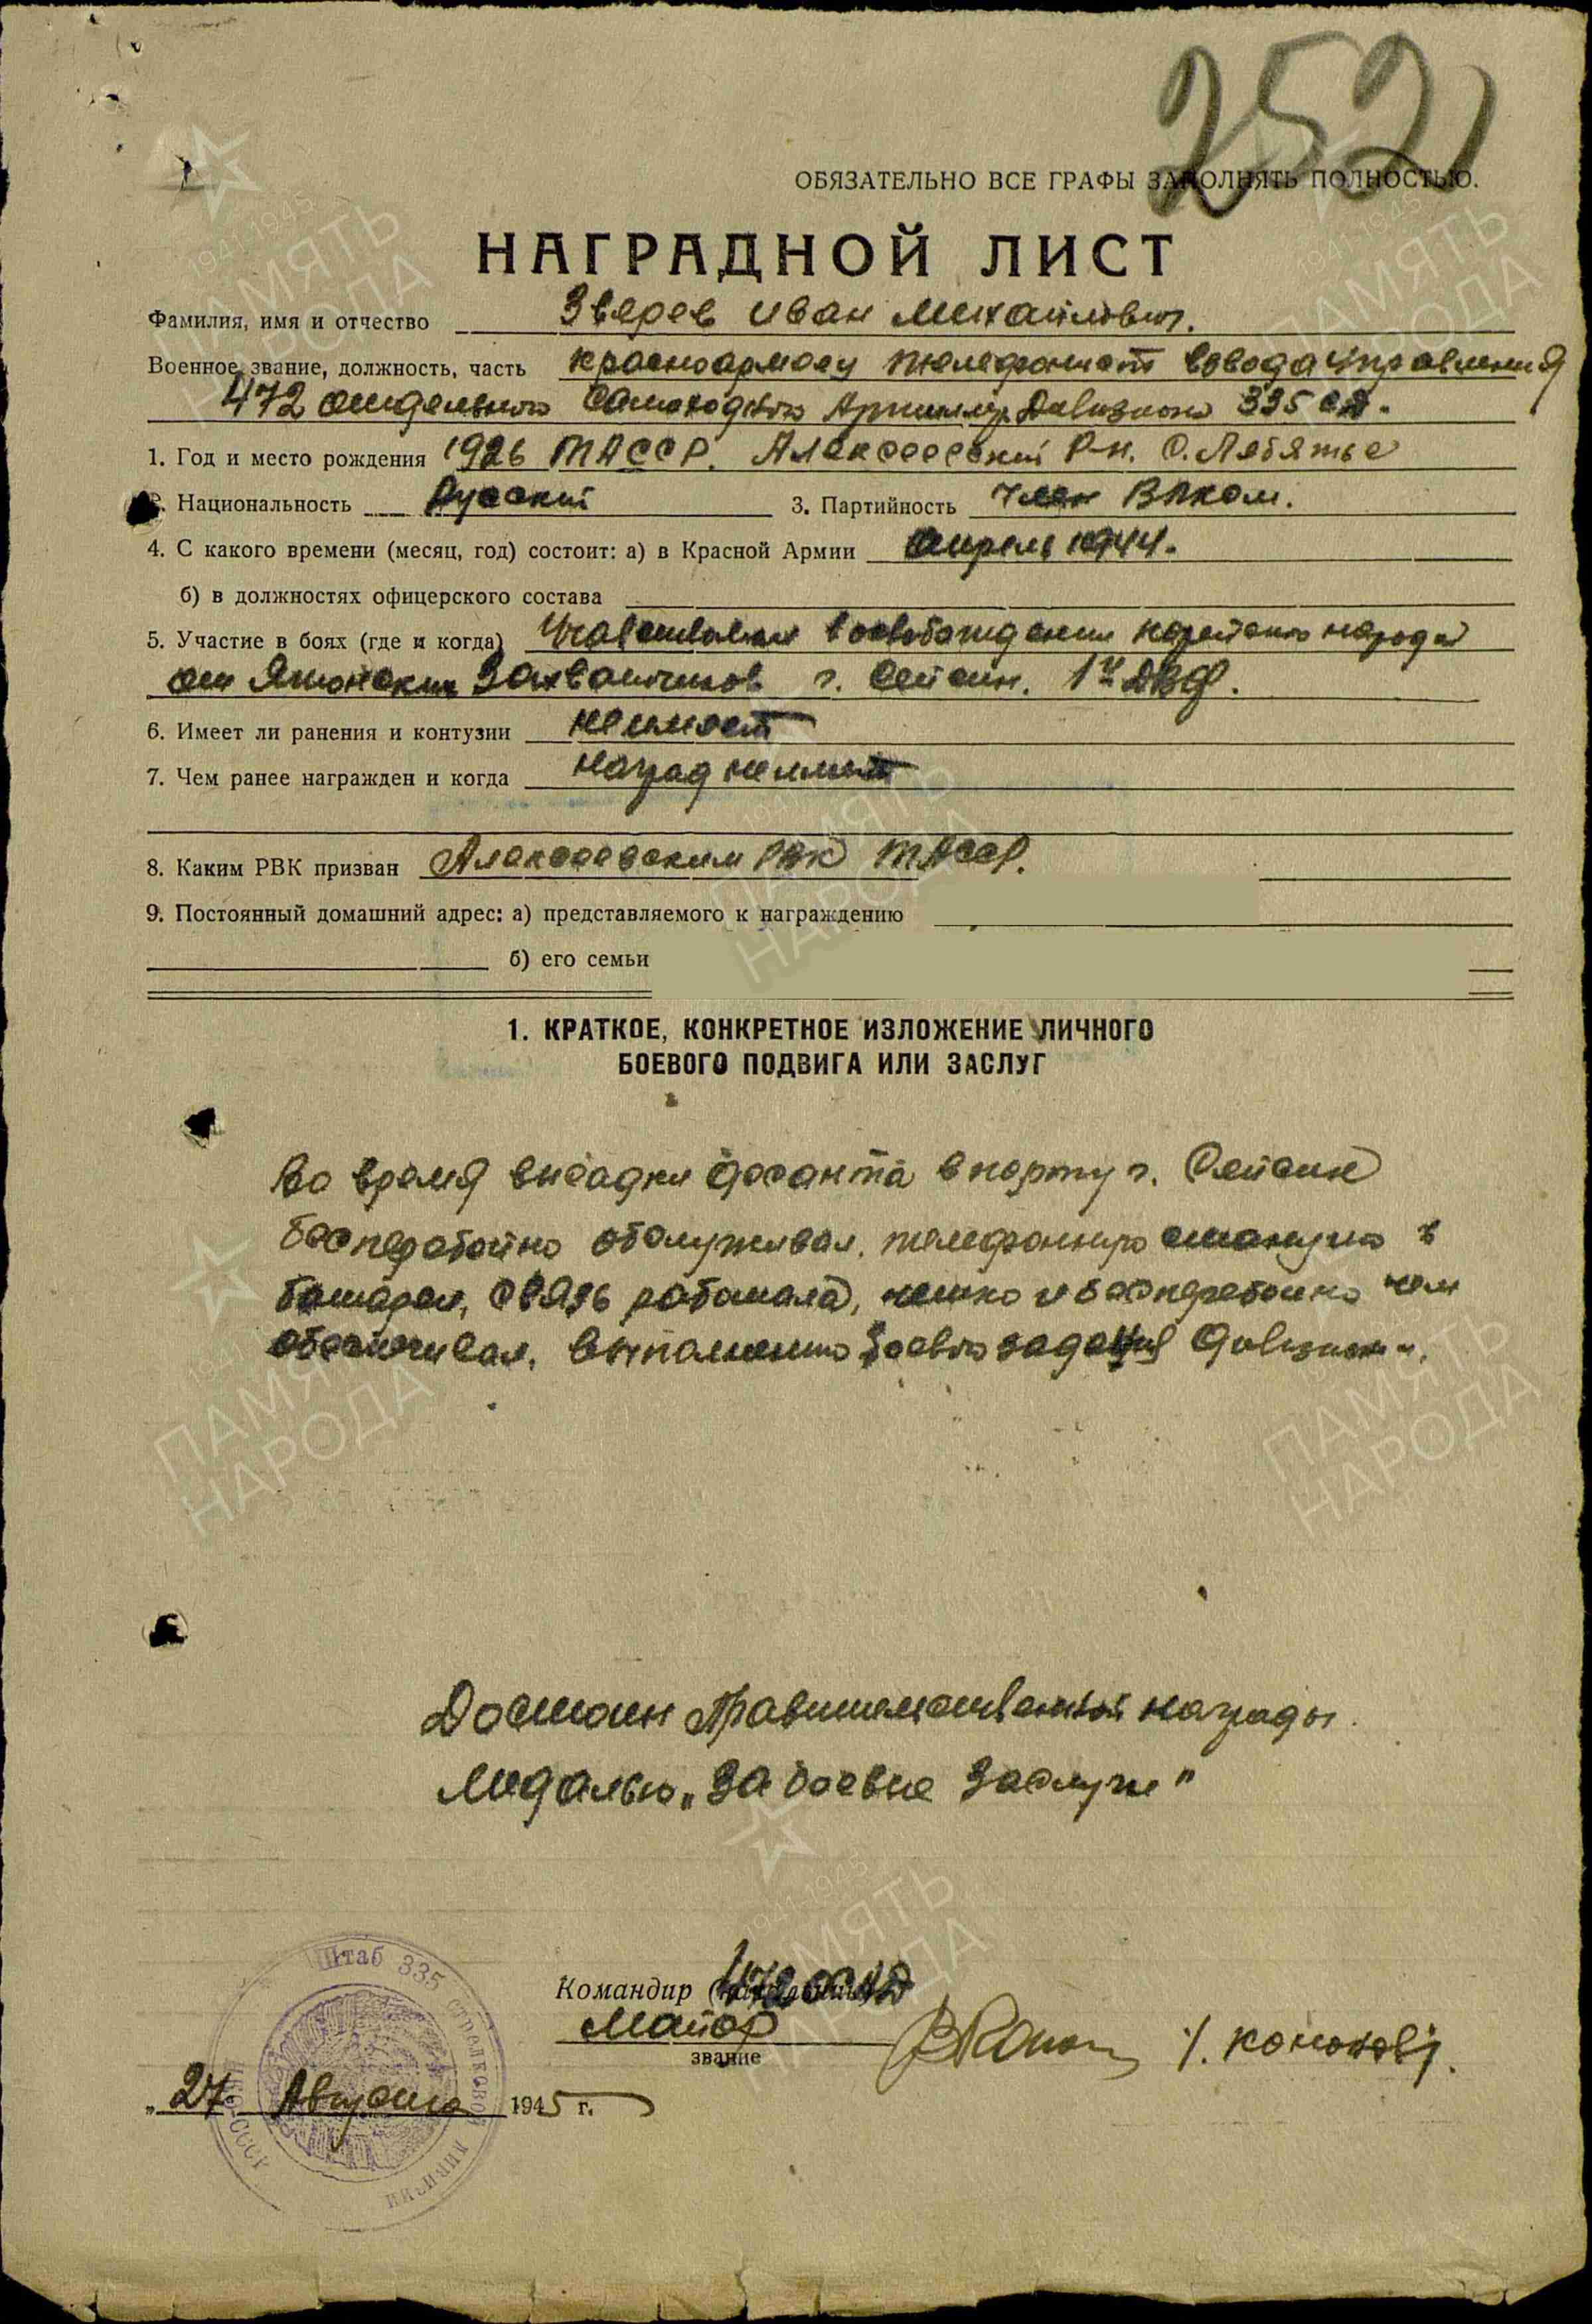 252
ОБЯЗАТЕЛЬНО ВСЕ ГРАФЫ ЗАПОЛНЯТЬ ПОЛНОСТЬЮ.
НАГРАДНОЙ ЛИСТ
Фамилия, имя и отчество Зверев Иван Михайлович.
Военное звание, должность, часть красноармеец телефонист взвода управления
472 отдельного Самоходного Артиллер. Дивизиона 335 СД.
1. Год и место рождения 1926 ТАССР. Алексеевский р-н. С. Лебяжье
2. Национальность Русский 3. Партийность Член ВЛКСМ.
4. С какого времени (месяц, год) состоит: а) в Красной Армии Апрель 1944.
б) в должностях офицерского состава
5. Участие в боях (где и когда) Участвовал в освобождении корейского народа
от Японских Захватчиков г. Сейсин. 1й ДВФ.
6. Имеет ли ранения и контузии не имеет
7. Чем ранее награжден и когда наград не имеет
8. Каким РВК призван Алексеевским РВК ТАССР.
9. Постоянный домашний адрес: а) представляемого к награждению
б) его семьи
1. КРАТКОЕ, КОНКРЕТНОЕ ИЗЛОЖЕНИЕ ЛИЧНОГО
БОЕВОГО ПОДВИГА ИЛИ ЗАСЛУГ
Во время высадки десанта в порту г. Сейсин
бесперебойно обслуживал, телефонную станцию в
батареи, связь работала, четко и бесперебойно чем
обеспечивал, выполнению боевого задания дивизиона.
Достоин Правительственной награды
Медалью „За боевые заслуги"
Командир 472 ОСАД
Майор
звание
/. Кононов/.
„27" Августа 1945 г.
Штаб 335 стрелковой дивизии
НКО-СССР
1941-1945
ПАМЯТЬ
НАРОДА